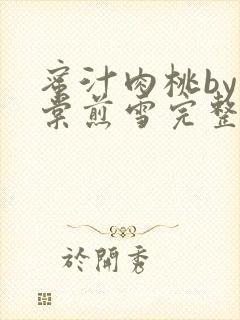 蜜汁肉桃by
棠煎雪完整
於開秀